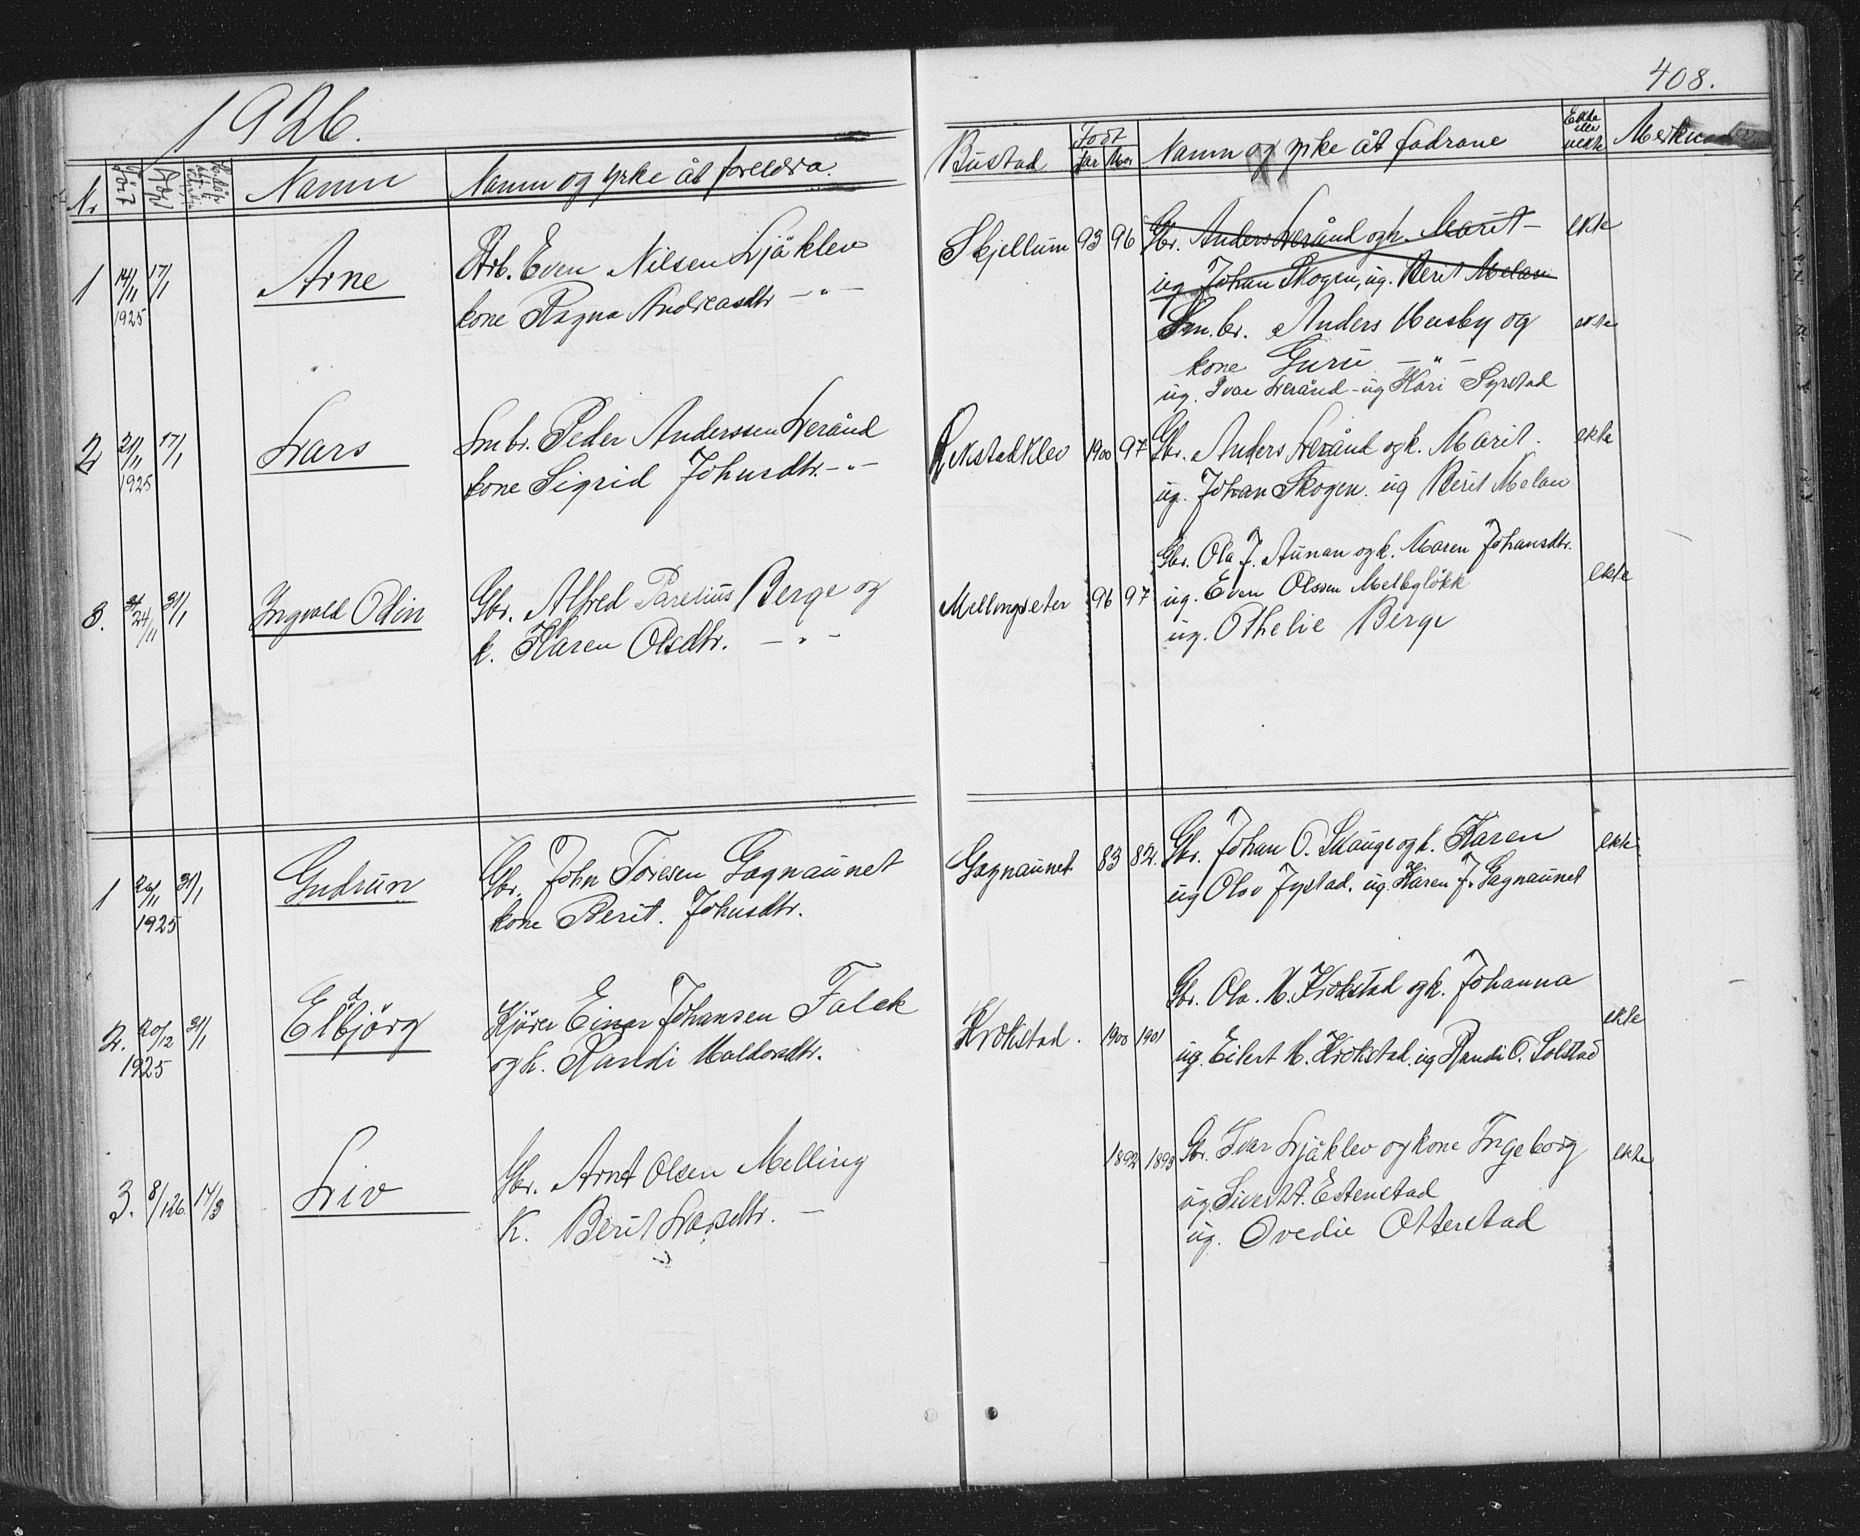 1926.
408.
Nr Født Døbt Namn Namn og yrke åt foreldra. Bustad Født Far Mor Namn og yrke åt fadrane Ekte eller uekte
1 14/11 1925 17/1 Arne Arb. Even Nilsen Ljåklev Skjellum 93 96 Gbr. Anders Lerånd og k. Marit – ekte
kone Ragna Andreasdtr – „ – ug. Johan Skogen, ug. Berit Melan
Sm.br. Anders Husby og ekte
kone Guru – „ –
ug. Ivar Lerånd - ug Kari Syrstad
2 2/11 1925 17/1 Lars Smbr. Peder Anderssen Lerånd 1900 97 Gbr. Anders Lerånd og k. Marit. ekte
kone Sigrid Johnsdtr. – „ – ug. Johan Skogen. ug Berit Melan
Gbr. Ola J. Aunan og k. Maren Johansdtr.
3. 24/11 31/1 Ingvald Odin Gbr. Alfred Parelius Berge og Mellingseter 96 97 ug. Even Olsen Melbyløkk ekte
k. Karen Olsdtr. – „ – ug. Othelie Berge
1 26/11 1925 31/1 Gudrun Gbr. John Toresen Gagnaunet Gagnaunet 83 82. Gbr. Johan O. Skauge og k. Karen ekte
kone Berit. Johnsdtr. ug Olav Jystad. ug. Karen J. Gagnaunet
Gbr. Ola. H. Krokstad og k. Johanna
2. 20/12 1925 31/1 Elbjörg Kjörer Einar Johansen Falck Krokstad. 1900 1901 ekte
og k. Randi Haldorsdtr. ug. Eilert H. Krokstad. ug Randi O. Solstad
3. 8/1 26. 14/3 Liv Gbr. Arnt Olsen Melling 1892 1893 Gbr. Ivar Ljåklev og kone Ingeborg ekte
K. Berit Larsdtr. – ug. Sivert T. Estenstad
ug. Ovedie Otterstad